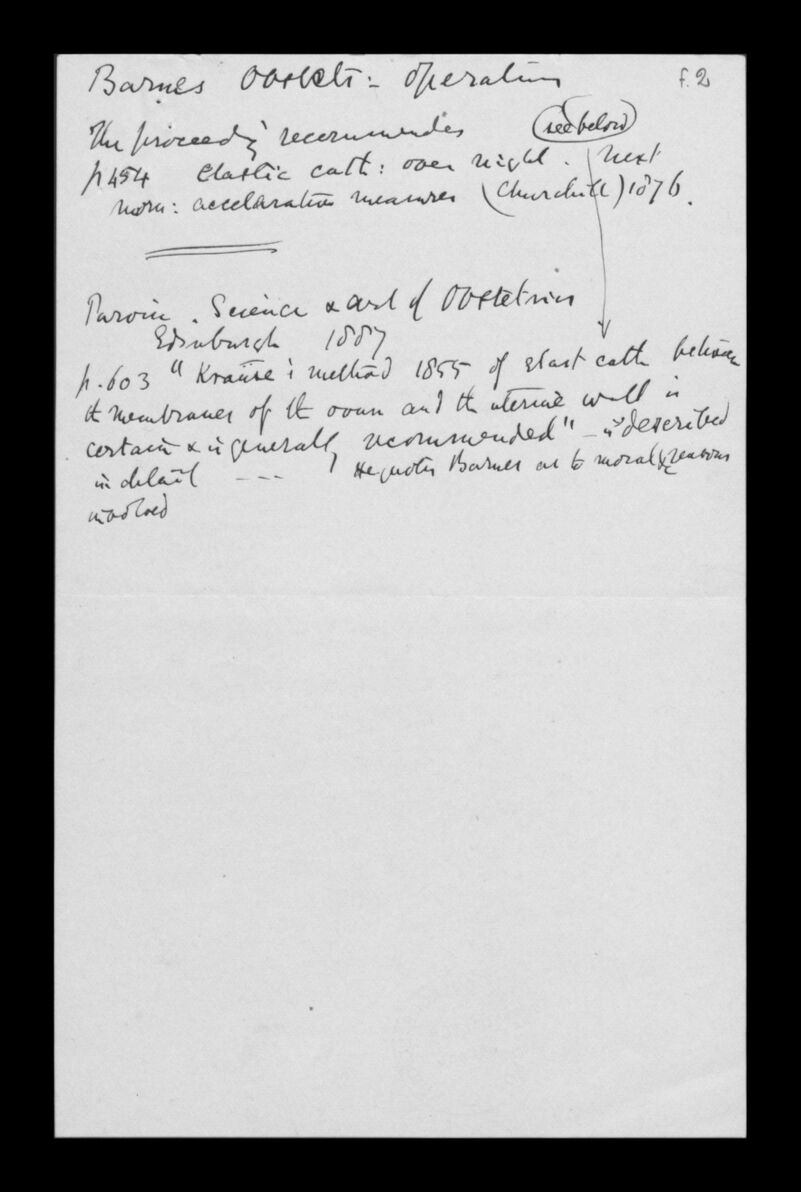 Barnes Obstets: operations f. 2
The proceeding recommended (see below)
p 454 Elastic cath: over night. Next
morn: acceleration measures (Churchill) 1876.
Parvin. Science & art of Obstetrics
Edinburgh 1887
p. 603 " Krause's method 1855 of elast cath between
the membranes of the ovum and the uterine wall is
certain & is generally recommended" – is described
in detail --- He quotes Barnes as to moral reasons
involved